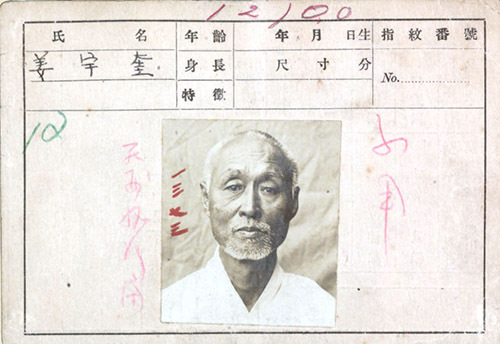 12100
氏 名 年齡 年 月 日生 指紋番號
姜宇奎 身長 尺 寸 分 No.
特徵
12
一三七三
不用